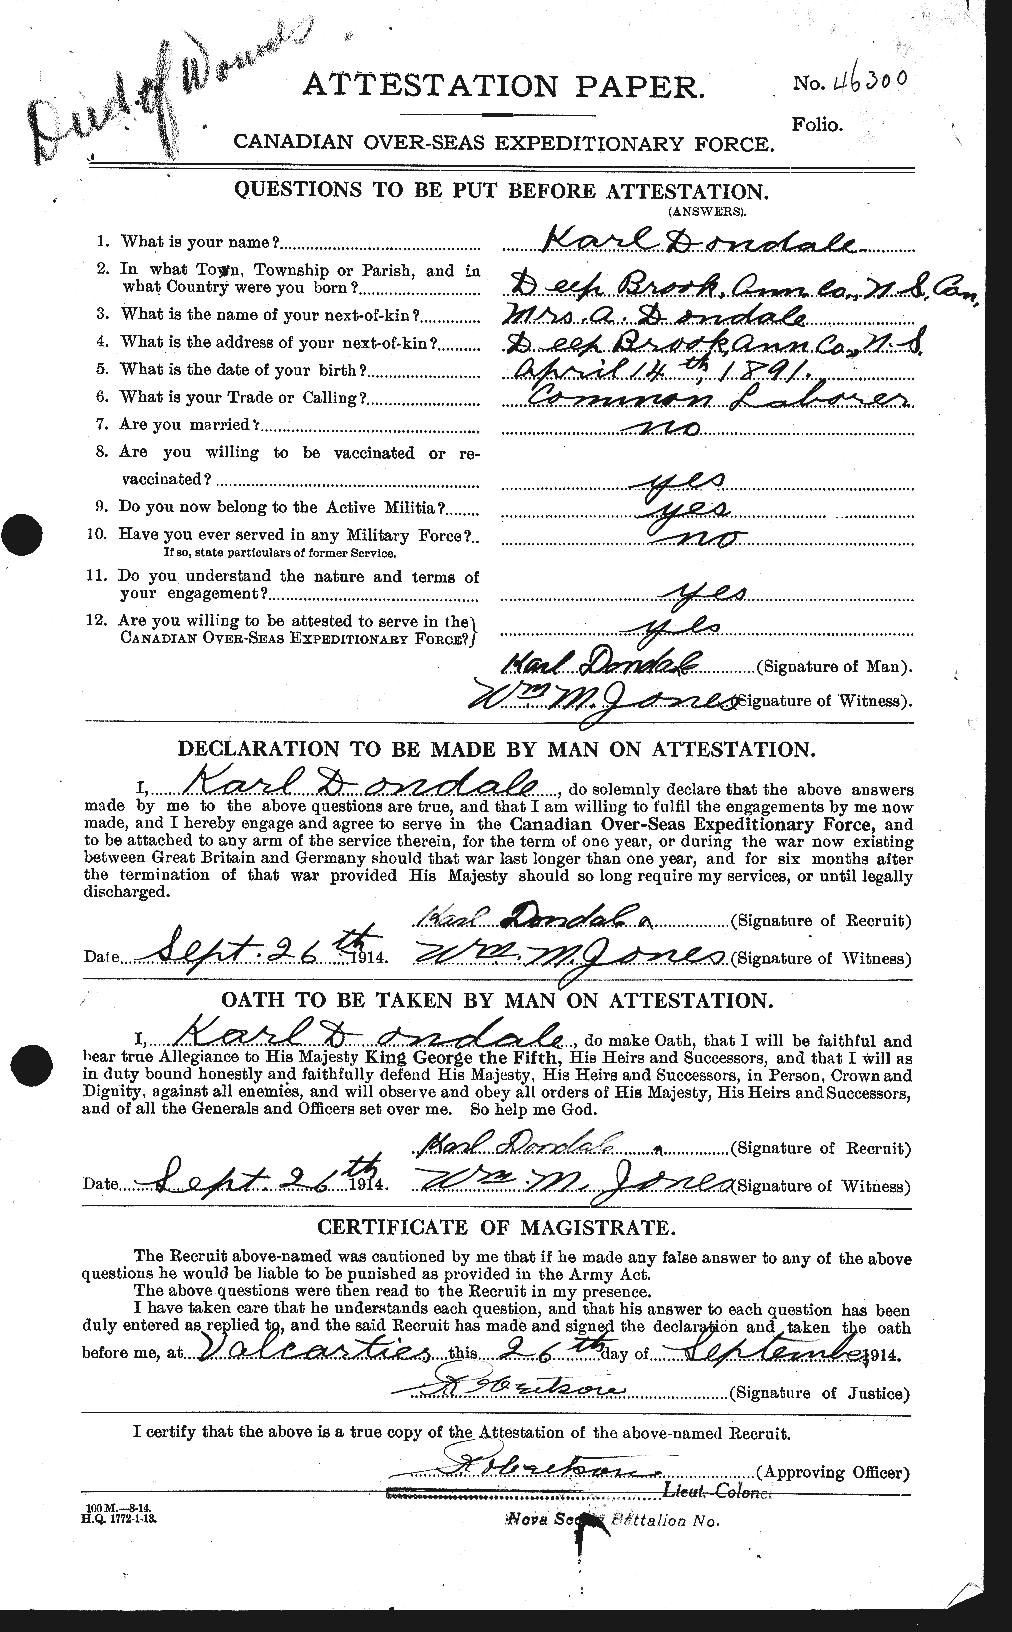 Died of Wounds
ATTESTATION PAPER.
No. 46300
Folio.
CANADIAN OVER-SEAS EXPEDITIONARY FORCE.
QUESTIONS TO BE PUT BEFORE ATTESTATION.
(ANSWERS).
1. What is your name? Karl Dondale
2. In what Town, Township or Parish, and in
what Country were you born? Deep Brook, Ann. Co., N.S. Can,
3. What is the name of your next-of-kin? Mrs. A. Dondale
4. What is the address of your next-of-kin? Deep Brook, Ann Co., N.S.
5. What is the date of your birth? April 14th, 1891.
6. What is your Trade or Calling? Common Laborer
7. Are you married? no
8. Are you willing to be vaccinated or re-
vaccinated? yes
9. Do you now belong to the Active Militia? yes
10. Have you ever served in any Military Force? no
If so, state particulars of former Service.
11. Do you understand the nature and terms of
your engagement? yes
12. Are you willing to be attested to serve in the
CANADIAN OVER-SEAS EXPEDITIONARY FORCE? yes
Karl Dondale (Signature of Man).
Wm M. Jones (Signature of Witness).
DECLARATION TO BE MADE BY MAN ON ATTESTATION.
I, Karl Dondale, do solemnly declare that the above answers
made by me to the above questions are true, and that I am willing to fulfil the engagements by me now
made, and I hereby engage and agree to serve in the Canadian Over-Seas Expeditionary Force, and
to be attached to any arm of the service therein, for the term of one year, or during the war now existing
between Great Britain and Germany should that war last longer than one year, and for six months after
the termination of that war provided His Majesty should so long require my services, or until legally
discharged.
Karl Dondale (Signature of Recruit)
Date Sept. 26th 1914. Wm. M. Jones (Signature of Witness)
OATH TO BE TAKEN BY MAN ON ATTESTATION.
I, Karl Dondale, do make Oath, that I will be faithful and
bear true Allegiance to His Majesty King George the Fifth, His Heirs and Successors, and that I will as
in duty bound honestly and faithfully defend His Majesty, His Heirs and Successors, in Person, Crown and
Dignity, against all enemies, and will observe and obey all orders of His Majesty, His Heirs and Successors,
and of all the Generals and Officers set over me. So help me God.
Karl Dondale (Signature of Recruit)
Date Sept. 26th 1914. Wm. M. Jones (Signature of Witness)
CERTIFICATE OF MAGISTRATE.
The Recruit above-named was cautioned by me that if he made any false answer to any of the above
questions he would be liable to be punished as provided in the Army Act.
The above questions were then read to the Recruit in my presence.
I have taken care that he understands each question, and that his answer to each question has been
duly entered as replied to, and the said Recruit has made and signed the declaration and taken the oath
before me, at Valcartier this 26th day of September 1914.
Robertson (Signature of Justice)
I certify that the above is a true copy of the Attestation of the above-named Recruit.
Robertson (Approving Officer)
Lieut-Colonel
100 M.—8-14.
H.Q. 1772-1-13.
Nova Scotia Battalion No.